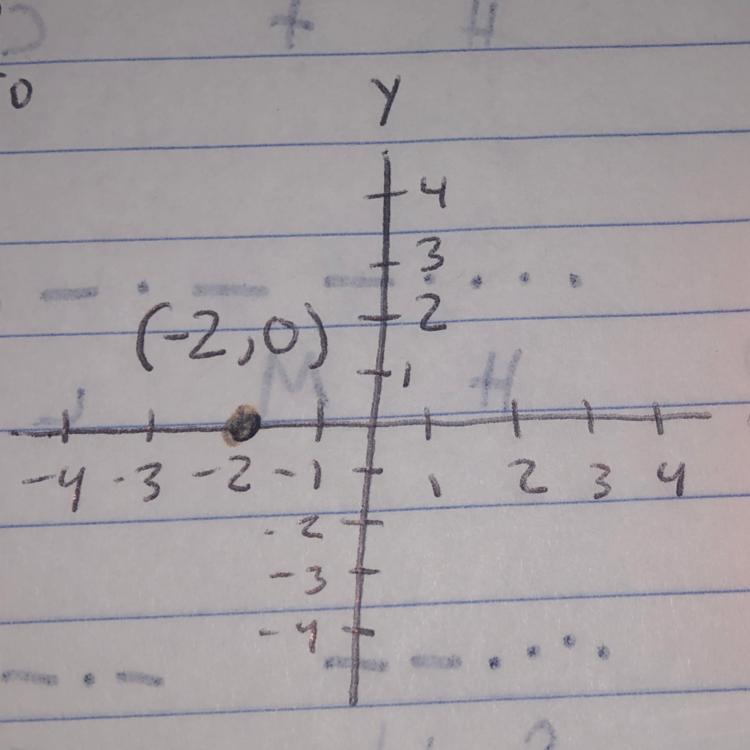 Y
4
3
2
(-2,0)
1
-4 -3 -2 -1 1 2 3 4
-2
-3
-4